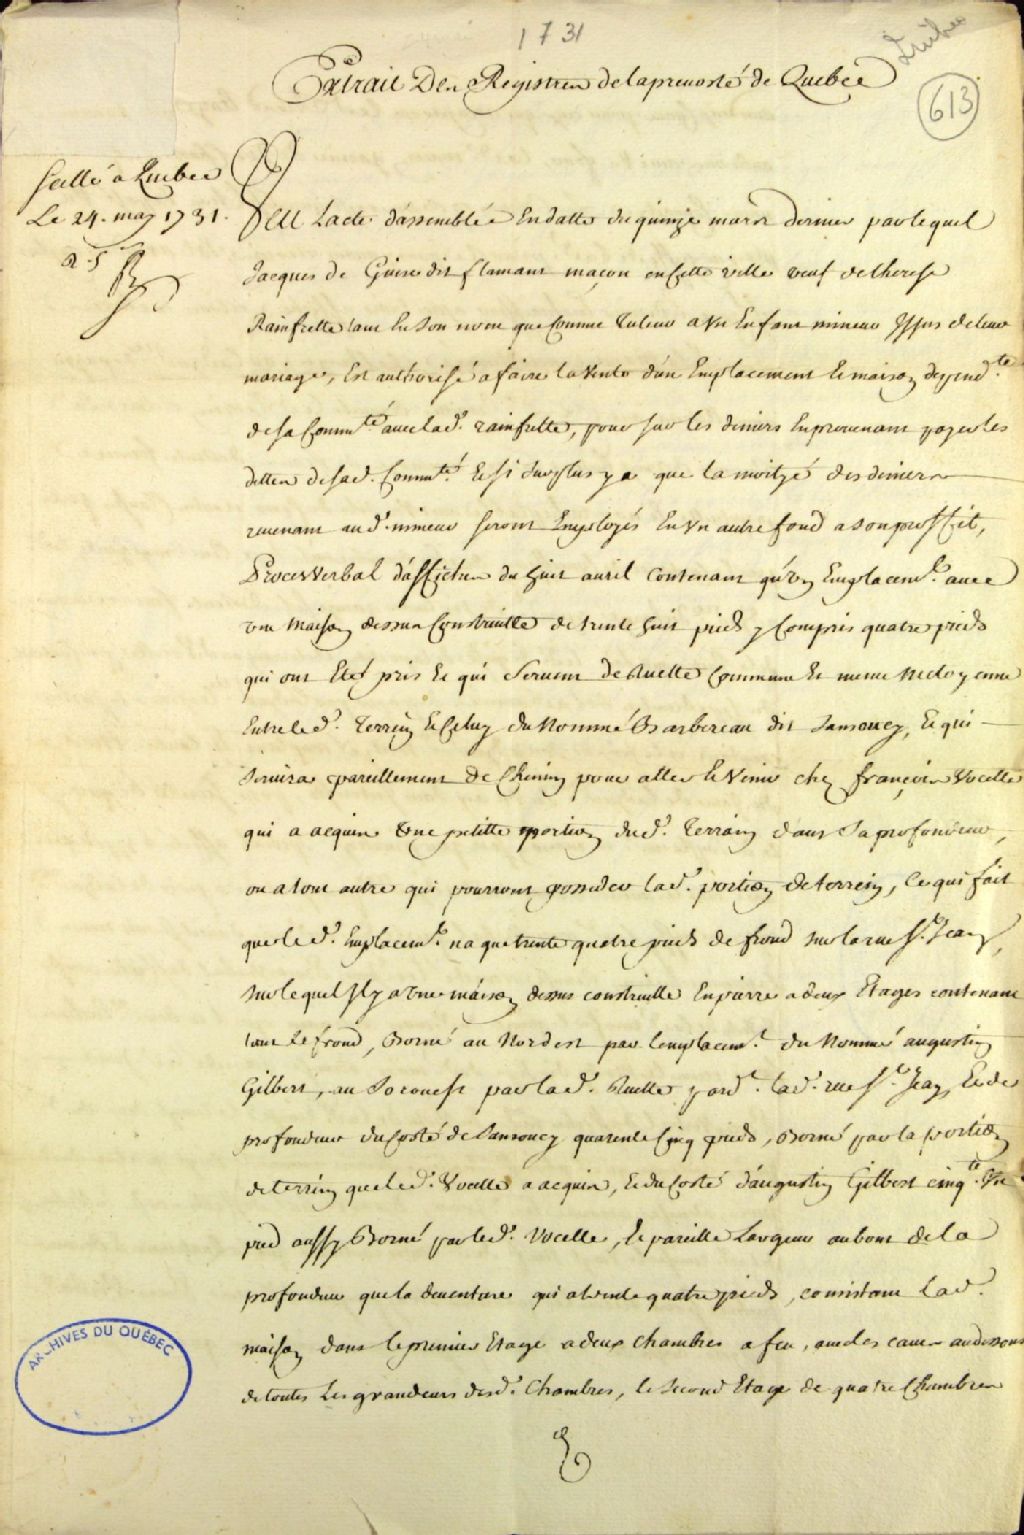 1731
Quebec
613
Extrait Des Registres de la prevosté de Quebec
Scellé a Quebec
Le 24. may 1731.
R. 5
Veu Lacte dassemblée En datte du quinze mars dernier par lequel
Jacques de Guise dit flamant maçon en cette ville veuf de therese
Rainfrette tant En son nom que comme Tuteur a un Enfant mineur Issus de leur
mariage, Est authorisé a faire la vente d'un Emplacement Et maison depend.te
de sa Commu.té avec lad.e rainfrette, pour sur les deniers En provenant payer les
dettes de sad. Commu.té Et si surplus y a que la moityé des deniers
revenant aud.t mineur seront Employés En un autre fond a son proffit,
Procesverbal d'affiches du huit avril contenant qu'un Emplacem.t avec
une maison dessus Construitte de trente huit pieds y Compris quatre pieds
qui ont Eté pris Et qui servent de Ruelle Commune Et meme mitoyenne
Entre led.t Terrein Et Celuy du Nommé Barbereau dit Sansoucy, Et qui
servira pareillement de Chemin pour aller Et venir chez françois Vocelle
qui a acquis Une petitte portion dud.t Terrain dans sa profondeur,
ou a tout autre qui pourront posseder lad.e portion de terrein, Ce qui fait
que led.t Emplacem.t n'a que trente quatre pieds de frond sur la rue S.t Jean,
sur lequel Il y a une maison dessus construitte En pierre a deux Etages contenant
tout Le frond, Borné au Nordest par l'emplacem.t du Nommé augustin
Gilbert, au Sorouest par lad.e Ruelle pard.t lad.e rue S.t Jean, Et de
profondeur du Costé de Sansoucy quarente Cinq pieds, Borné par la portion
de terrein que led.t Vocelle a acquis, Et du Costé d'augustin Gilbert cinq.te Un
pied aussy Borné par led.t Vocelle, Et pareille Largeur au bout de la
profondeur que la devanture qui a trente quatre pieds, consistant Lad.e
maison dans le premier Etage a deux chambres a feu, avec des caves au dessous
de toutes Les grandeurs desd.s Chambres, le second Etage de quatre Chambres
ARCHIVES DU QUÉBEC